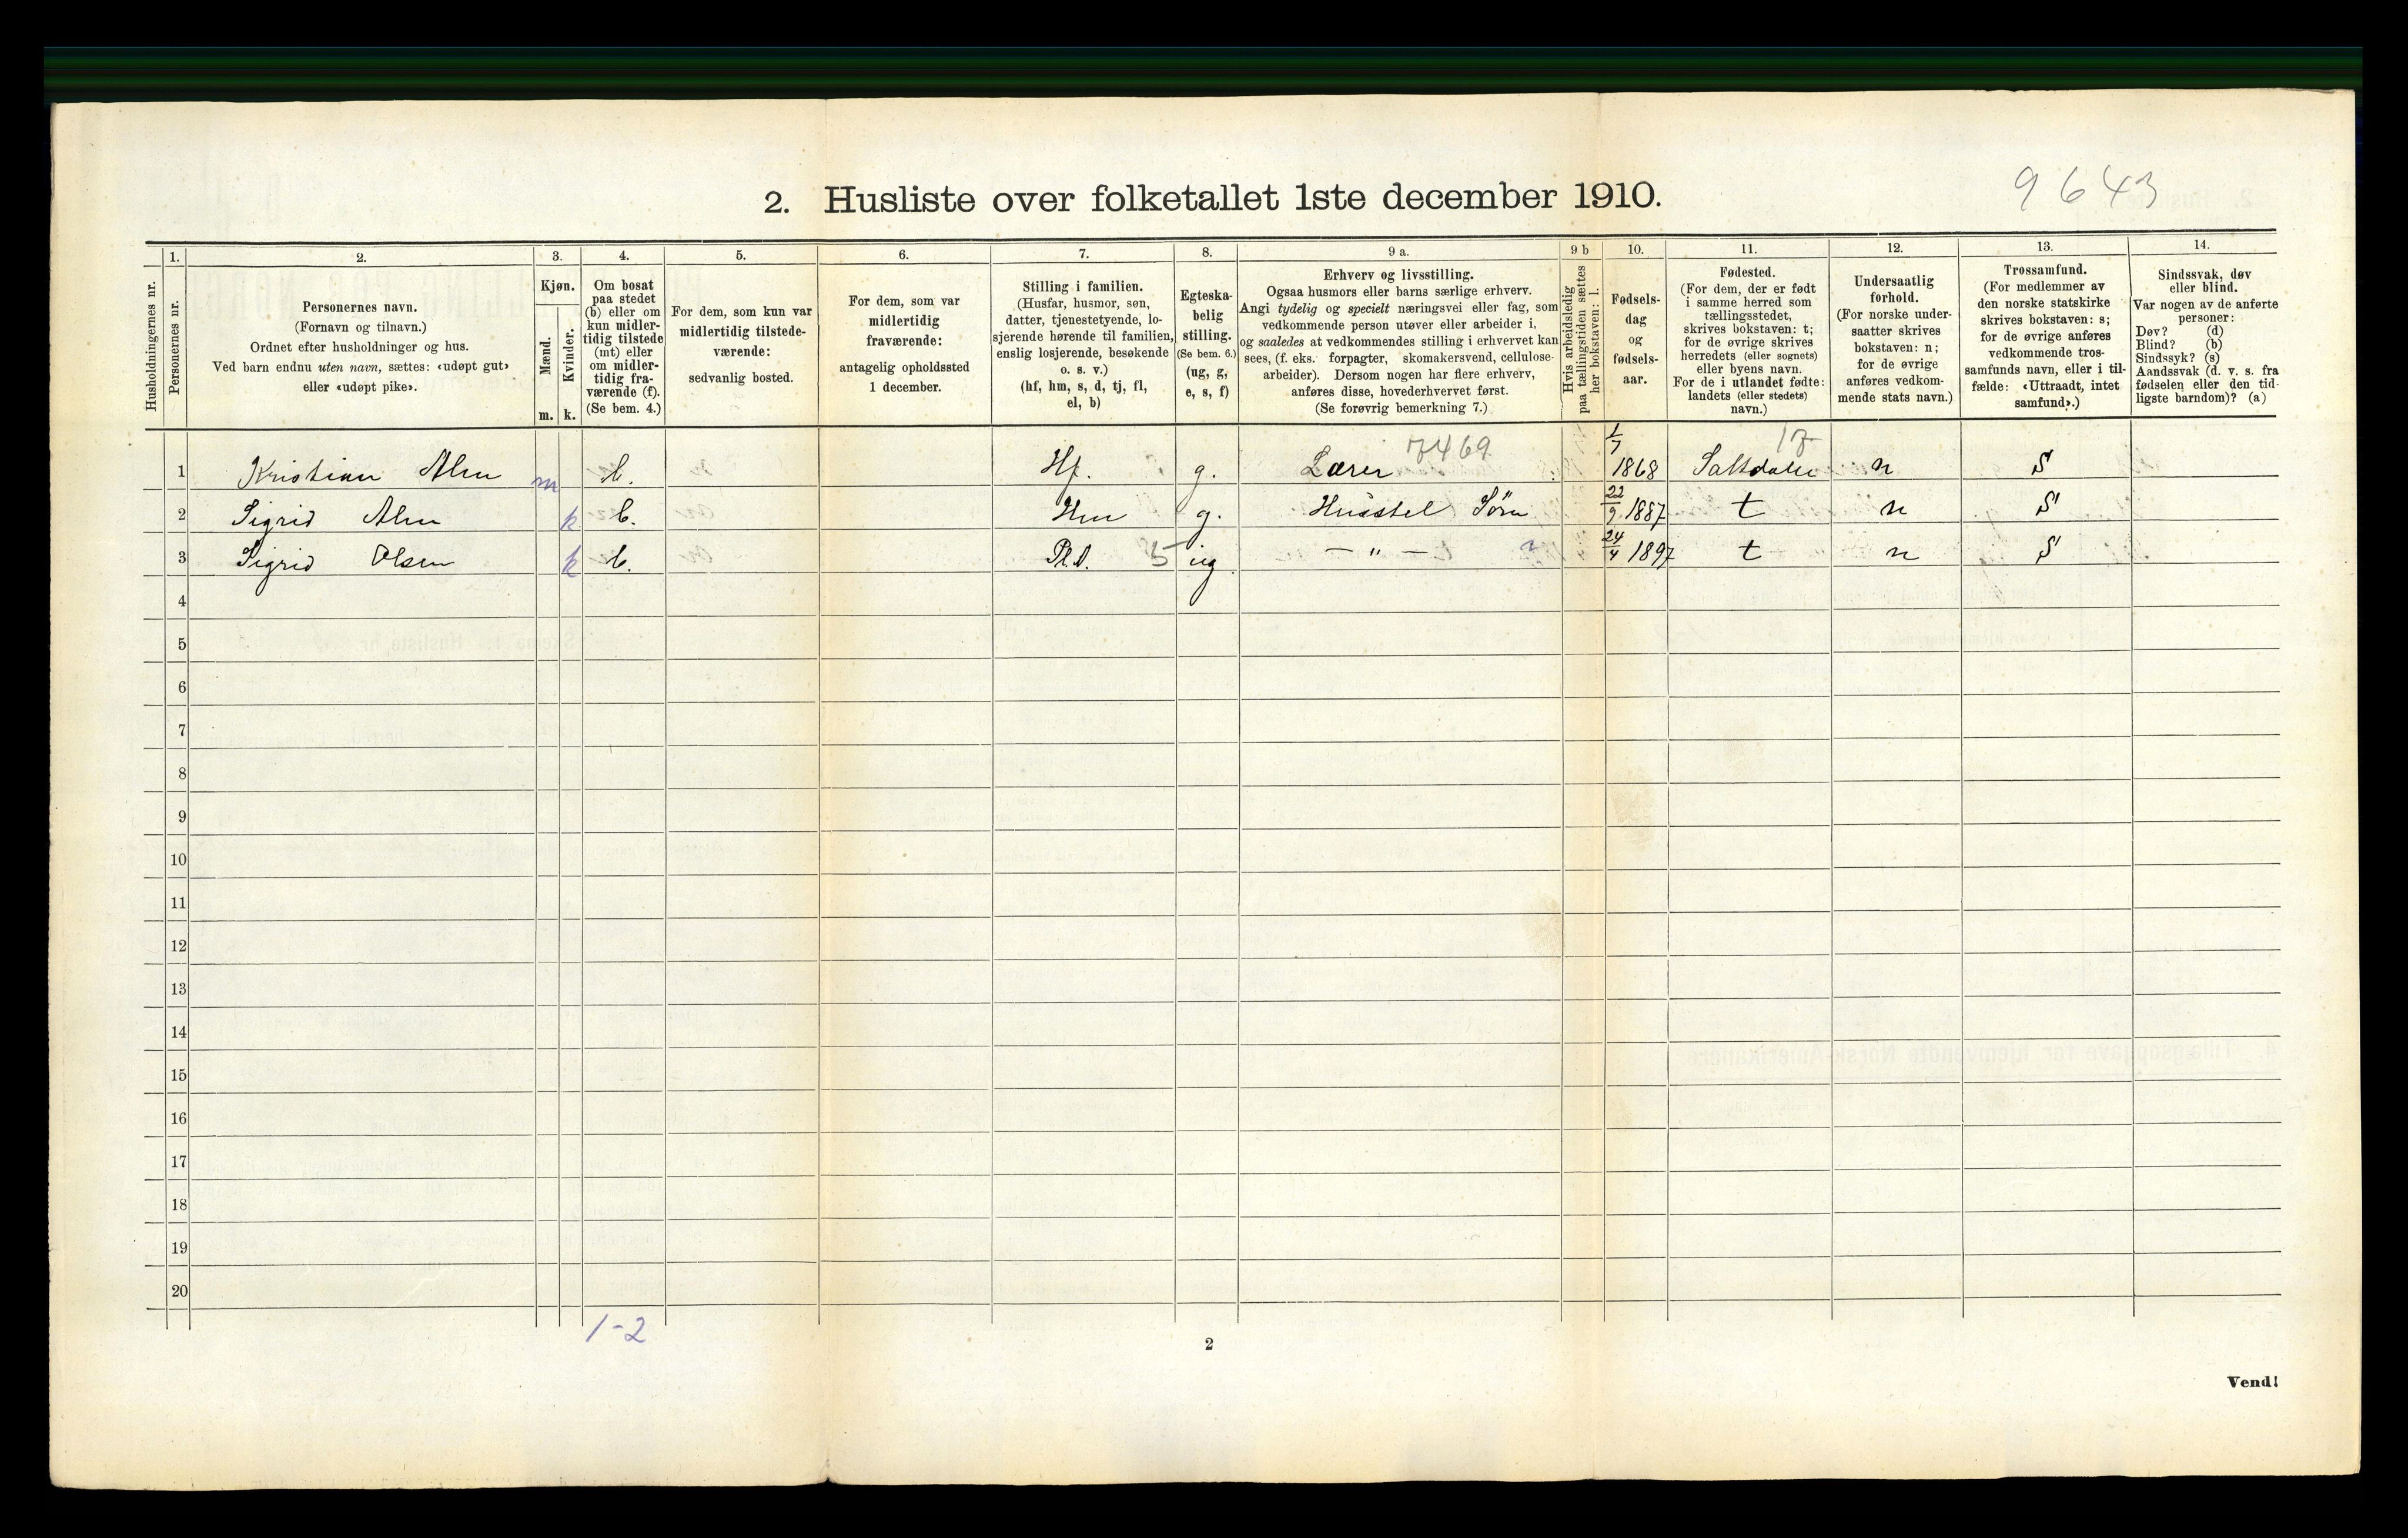 9643
2. Husliste over folketallet 1ste december 1910.
Husholdningernes nr.
1.
Personernes nr.
2.
Personernes navn.
(Fornavn og tilnavn.)
Ordnet efter husholdninger og hus.
Ved barn endnu uten navn, sættes: «udøpt gut»
eller «udøpt pike».
3.
Kjøn.
Mænd.
Kvinder.
m. k.
4.
Om bosat
paa stedet
(b) eller om
kun midler-
tidig tilstede
(mt) eller
om midler-
tidig fra-
værende (f).
(Se bem. 4.)
5.
For dem, som kun var
midlertidig tilstede-
værende:
sedvanlig bosted.
6.
For dem, som var
midlertidig
fraværende:
antagelig opholdssted
1 december.
7.
Stilling i familien.
(Husfar, husmor, søn,
datter, tjenestetyende, lo-
sjerende hørende til familien,
enslig losjerende, besøkende
o. s. v.)
(hf, hm, s, d, tj, fl,
el, b)
8.
Egteska-
belig
stilling.
(Se bem. 6.)
(ug, g,
e, s, f)
9 a.
Erhverv og livsstilling.
Ogsaa husmors eller barns særlige erhverv.
Angi tydelig og specielt næringsvei eller fag, som
vedkommende person utøver eller arbeider i,
og saaledes at vedkommendes stilling i erhvervet kan
sees, (f. eks. forpagter, skomakersvend, cellulose-
arbeider). Dersom nogen har flere erhverv,
anføres disse, hovederhvervet først.
(Se forøvrig bemerkning 7.)
9 b
Hvis arbeidsledig
paa tællingstiden sættes
her bokstaven: l.
10.
Fødsels-
dag
og
fødsels-
aar.
11.
Fødested.
(For dem, der er født
i samme herred som
tællingsstedet,
skrives bokstaven: t;
for de øvrige skrives
herredets (eller sognets)
eller byens navn.
For de i utlandet fødte:
landets (eller stedets)
navn.)
12.
Undersaatlig
forhold.
(For norske under-
saatter skrives
bokstaven: n;
for de øvrige
anføres vedkom-
mende stats navn.)
13.
Trossamfund.
(For medlemmer av
den norske statskirke
skrives bokstaven: s;
for de øvrige anføres
vedkommende tros-
samfunds navn, eller i til-
fælde: «Uttraadt, intet
samfund».)
14.
Sindssvak, døv
eller blind.
Var nogen av de anførte
personer:
Døv? (d)
Blind? (b)
Sindssyk? (s)
Aandssvak (d. v. s. fra
fødselen eller den tid-
ligste barndom)? (a)
7469 17
1 Kristian Alm m b. Hf. g. Lærer 1/7 1868 Saltdalen n S
2 Sigrid Alm k b. Hm g. Husstel 22/9 1887 t n S
3 Sigrid Olsen k b. Pl.d. 5 ug — " — 24/4 1897 t n S
4
5
6
7
8
9
10
11
12
13
14
15
16
17
18
19
20
1-2
2
Vend!